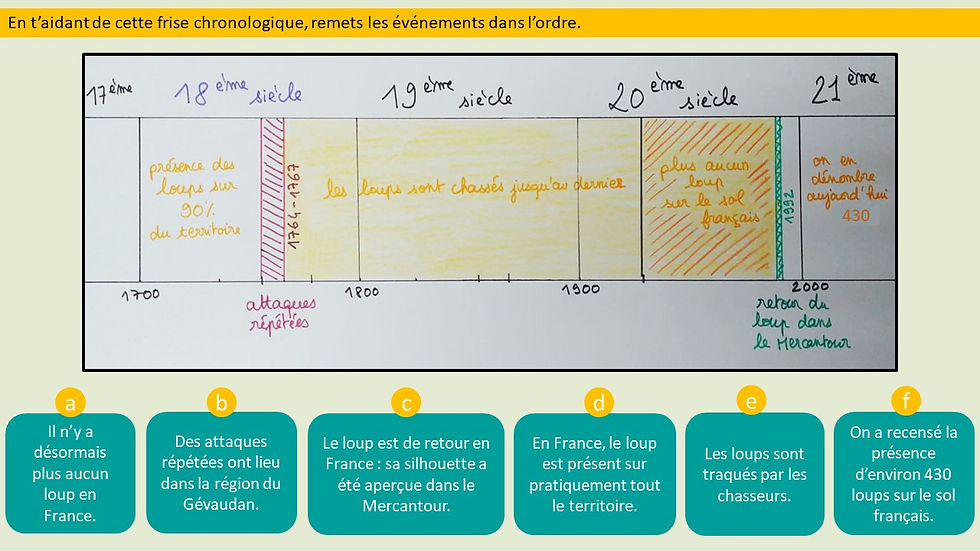 En t’aidant de cette frise chronologique, remets les événements dans l’ordre.
17ème
18ème siècle
19ème siècle
20ème siècle
21ème
présence des
loups sur
90%
du territoire
1764-1767
les loups sont chassés jusqu'au dernier
plus aucun
loup
sur le sol
français
1992
on en
dénombre
aujourd'hui
430
1700
1800
1900
2000
attaques
répétées
retour du
loup dans
le Mercantour
a
Il n’y a
désormais
plus aucun
loup en
France.
b
Des attaques
répétées ont lieu
dans la région du
Gévaudan.
c
Le loup est de retour en
France : sa silhouette a
été aperçue dans le
Mercantour.
d
En France, le loup
est présent sur
pratiquement tout
le territoire.
e
Les loups sont
traqués par les
chasseurs.
f
On a recensé la
présence
d’environ 430
loups sur le sol
français.